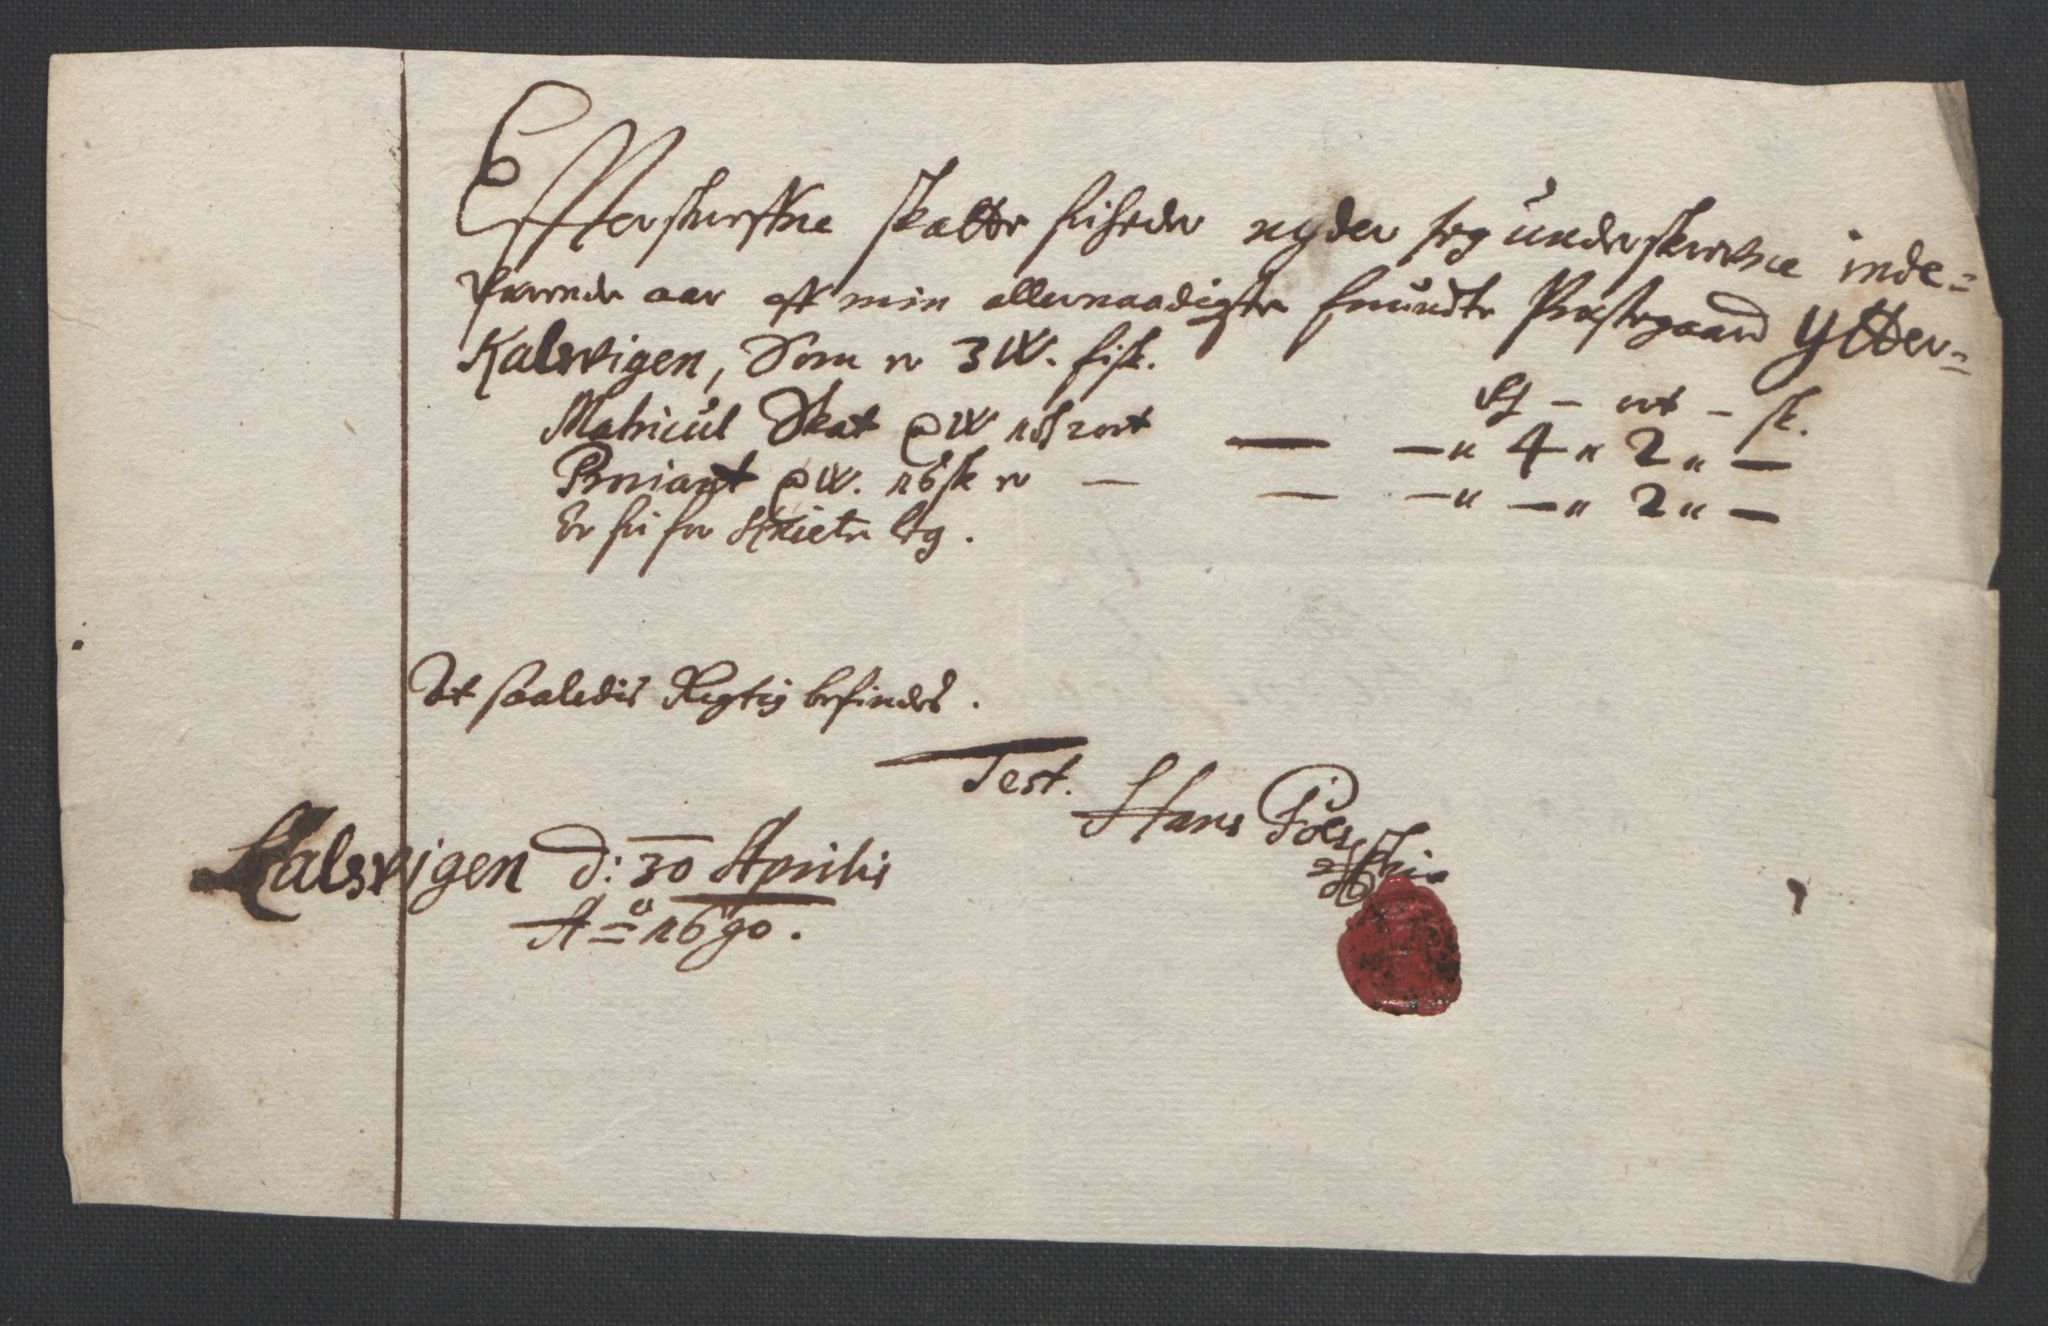 Effterskrefne skatte friheder nyder ieg underskrefne inde-
værende aar aff min allernaadigste forundte Præstegaard Ytter-
Kalsvigen, Som er 3 W. fisk.
Rdr - ort - sk.
Matricul Skat p W 1 Rdr 2 ort — —" 4 " 2 " —
Proviant p W. 16 sk er — — —" — " 2 " —
Er fri for skietz leg.
At saaledis Rigtig befindes.
Test. Hans
Kalsvigen d: 30 Aprilis
Ao 1690.